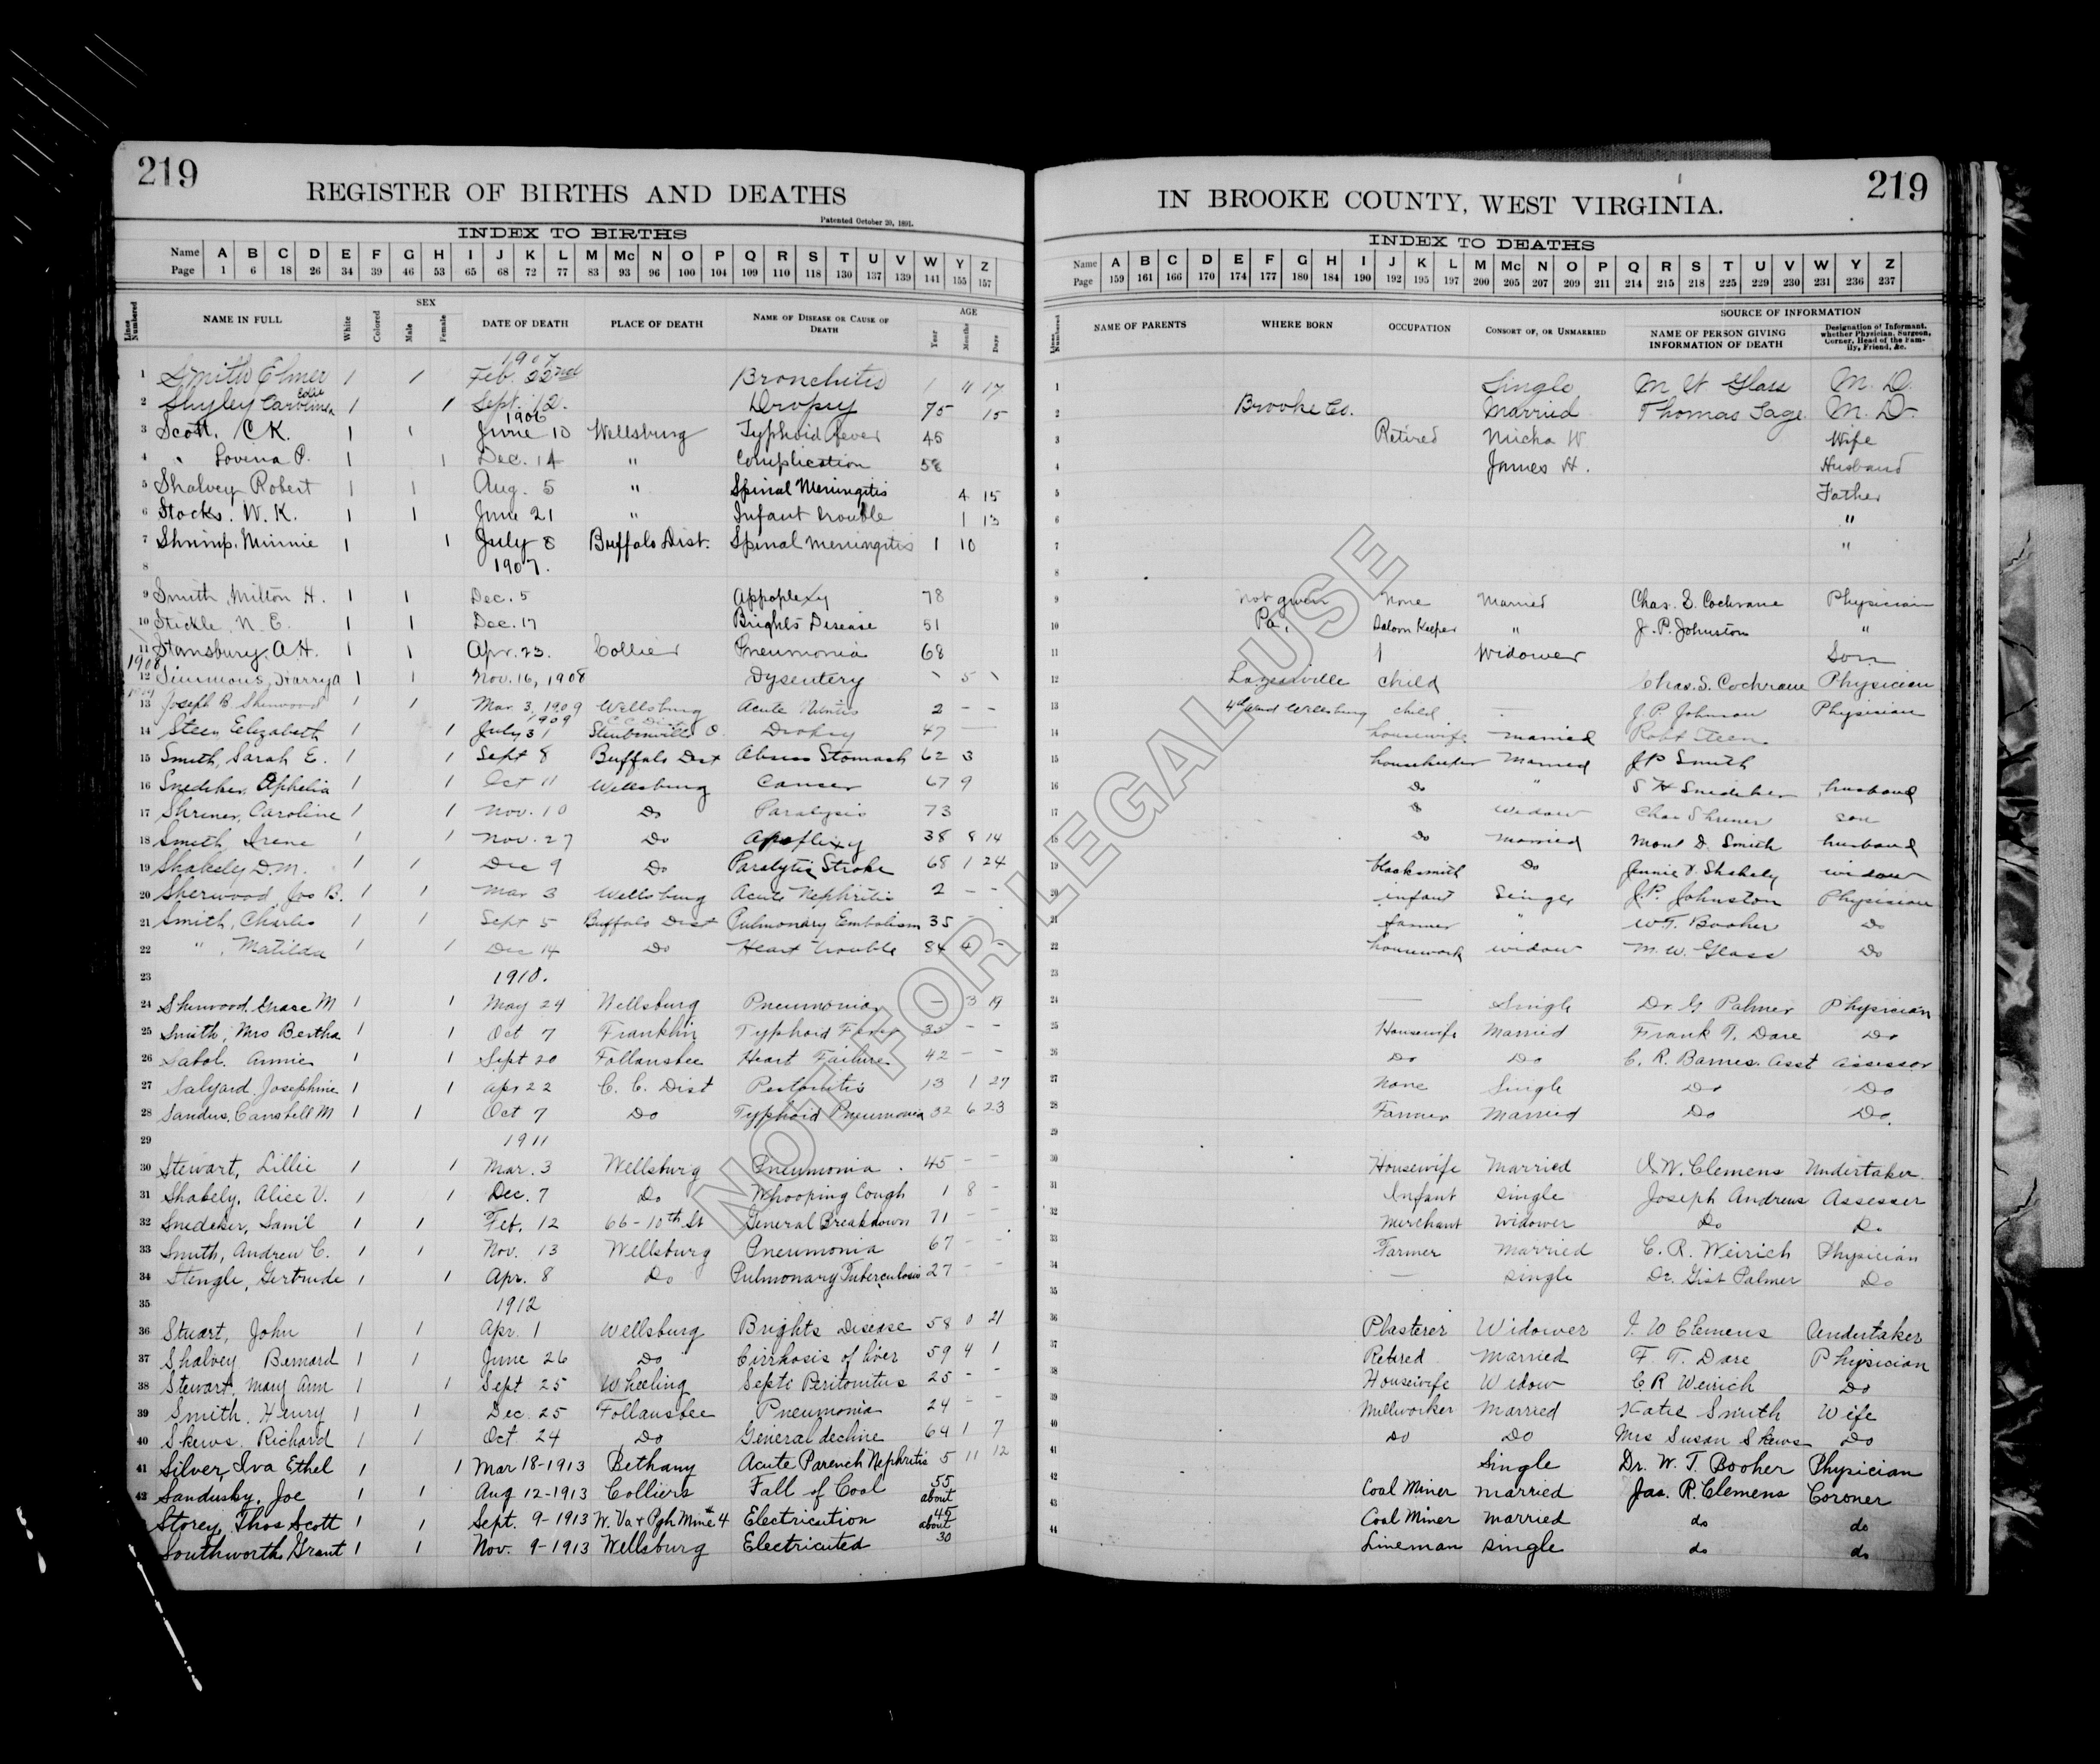 219
REGISTER OF BIRTHS AND DEATHS
Patented October 20, 1891.
INDEX TO BIRTHS
Name A B C D E F G H I J K L M Mc N O P Q R S T U V W Y Z
Page 1 6 18 26 34 39 46 53 65 68 72 77 83 93 96 100 104 109 110 118 130 137 139 141 155 157
Lines Numbered NAME IN FULL White Colored SEX Male Female DATE OF DEATH PLACE OF DEATH NAME OF DISEASE OR CAUSE OF DEATH AGE Year Months Days
1907
1 Smith Elmer 1 1 Feb. 22nd Bronchitis 1 11 17
2 Shyley Caroline Edie 1 1 Sept. 12. Dropsy 75 15
1906
3 Scott, C K. 1 1 June 10 Wellsburg Typhoid fever 45
4 " Lovena P. 1 1 Dec. 14 " Complication 58
5 Shalvey Robert 1 1 Aug. 5 " Spinal Meningitis 4 15
6 Stocks. W. K. 1 1 June 21 " Infant trouble 1 13
7 Shrimp. Minnie 1 1 July 8 Buffalo Dist. Spinal meningitis 1 10
8 1907.
9 Smith, Milton H. 1 1 Dec. 5 Appoplexy 78
10 Stickle, N. E. 1 1 Dec. 17 Brights Disease 51
11 Stansbury, A H. 1 1 Apr. 23. Collier Pneumonia 68
1908
12 Simmons, Harry 1 1 Nov. 16, 1908 Dysentery \ 5 \
1909
13 Joseph B Sherwood 1 1 Mar 3, 1909 Wellsburg Acute 2 – –
1909 C. C. Dist
14 Steen Elizabeth 1 1 July 31 Steubenville O. Dropsy 47 –
15 Smith, Sarah E. 1 1 Sept 8 Buffalo Dist Abcess Stomach 62 3
16 Snedeker Ophelia 1 1 Oct 11 Wellsburg Cancer 67 9
17 Shriner, Caroline 1 1 Nov. 10 Do Paralysis 73
18 Smith, Irene 1 1 Nov. 27 Do Apoplexy 38 8 14
19 Shakely D. M. 1 1 Dec 9 Do Paralytic Stroke 68 1 24
20 Sherwood, Jos B. 1 1 Mar 3 Wellsburg Acute Nephritis 2 – –
21 Smith, Charles 1 1 Sept 5 Buffalo Dist Pulmonary Embolism 35
22 " , Matilda 1 1 Dec 14 Do Heart trouble 84 4 –
23 1910.
24 Sherwood, Grace M 1 1 May 24 Wellsburg Pneumonia – 3 19
25 Smith, Mrs Bertha 1 1 Oct 7 Franklin Typhoid Fever – –
26 Sabol. Annie 1 1 Sept 20 Follansbee Heart Failure 42 – –
27 Salyard, Josephine 1 1 Apr 22 C. C. Dist Peritonitis 13 1 27
28 Sanders, Campbell M 1 1 Oct 7 Do Typhoid Pneumonia 32 6 23
29 1911
30 Stewart, Lillie 1 1 Mar. 3 Wellsburg Pneumonia. 45 – –
31 Shakely, Alice V. 1 1 Dec. 7 Do Whooping Cough 1 8 –
32 Snedeker, Sam'l 1 1 Feb. 12 66-10th St General Breakdown 71 – –
33 Smith, Andrew C. 1 1 Nov. 13 Wellsburg Pneumonia 67 – –
34 Stengle, Gertrude 1 1 Apr. 8 Do Pulmonary Tuberculosis 27 – –
35 1912
36 Stuart, John 1 1 Apr. 1 Wellsburg Brights Disease 58 0 21
37 Shalvey Bernard 1 1 June 26 Do Cirrhosis of liver 59 4 1
38 Stewart, Mary Ann 1 1 Sept 25 Wheeling Septi Peritonitus 25 – –
39 Smith, Henry 1 1 Dec. 25 Follansbee Pneumonia 24 – –
40 Skews, Richard 1 1 Oct 24 Do General decline 64 1 7
41 Silver, Iva Ethel 1 1 Mar 18-1913 Bethany Acute Parench Nephritis 5 11 12
42 Sandusky, Joe 1 1 Aug 12-1913 Colliers Fall of Coal 55
Storey, Thos Scott 1 1 Sept. 9-1913 W. Va & Pgh Mine #4 Electricution about 45
Southworth, Grant 1 1 Nov. 9-1913 Wellsburg Electricuted about 30
219
IN BROOKE COUNTY, WEST VIRGINIA.
INDEX TO DEATHS
Name A B C D E F G H I J K L M Mc N O P Q R S T U V W Y Z
Page 159 161 166 170 174 177 180 184 190 192 195 197 200 205 207 209 211 214 215 218 225 229 230 231 236 237
Lines Numbered NAME OF PARENTS WHERE BORN OCCUPATION CONSORT OF, OR UNMARRIED SOURCE OF INFORMATION
NAME OF PERSON GIVING INFORMATION OF DEATH Designation of Informant, whether Physician, Surgeon, Corner, Head of the Family, Friend, &c.
1 Single M W Glass M. D.
2 Brooke Co. Married Thomas Sage M. D.
3 Retired Micha W Wife
4 James H. Husband
5 Father
6 "
7 "
8
9 Not given None Married Chas. S. Cochrane Physician
10 Pa. Saloon Keeper " J. P. Johnston "
11 1 Widower Son
12 Lazearville child Chas. S. Cochrane Physician
13 4th Ward Wellsburg child – J. P. Johnson Physician
14 housewife married Robt Steen
15 housekeeper Married J P Smith
16 Do " S H Snedeker husband
17 Do widow Chas Shriner son
18 Do married Mont D. Smith husband
19 blacksmith Do Jennie V. Shakely widow
20 infant Single J. P. Johnston Physician
21 farmer " W T. Booher Do
22 housework widow M. W. Glass Do
23
24 – Single Dr. G Palmer Physician
25 Housewife Married Frank T. Dare Do
26 Do Do C. R. Barnes. Asst Assessor
27 None Single Do Do
28 Farmer Married Do Do.
29
30 Housewife Married J. W. Clemens Undertaker
31 Infant single Joseph Andrews Assesser
32 Merchant Widower Do Do
33 Farmer Married C. R. Weirich Physician
34 – single Dr. Gist Palmer Do
35
36 Plasterer Widower J. W Clemens Undertaker
37 Retired Married F. T. Dare Physician
38 Housewife Widow C. R Weirich Do
39 Millworker Married Katie Smith Wife
40 Do Do Mrs Susan Skews Do
41 Single Dr. W. T. Booher Physician
42 Coal Miner married Jas. R. Clemens Coroner
43 Coal Miner married do do
44 Lineman single do do
NOT FOR LEGAL USE